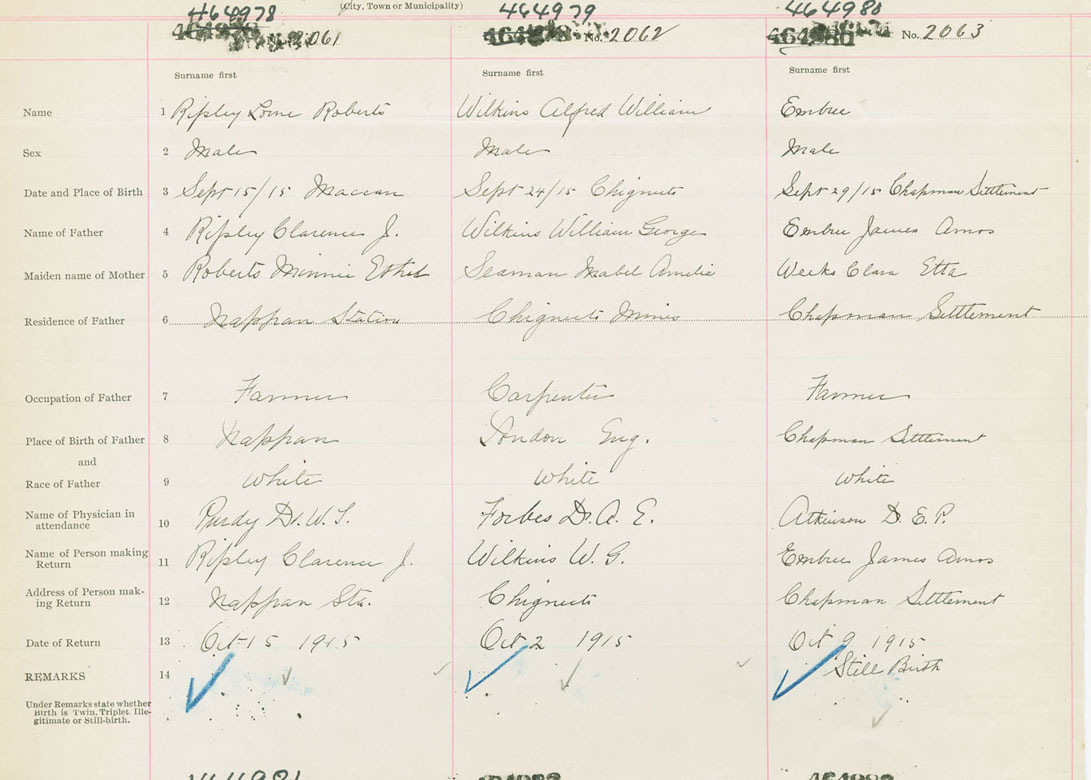 464978 (City, Town or Municipality) 464979 464980
2061 No. 2062 464986 No. 2063
Surname first Surname first Surname first
Name 1 Ripsley Lorne Roberts Wilkins Alfred William Embree
Sex 2 Male Male Male
Date and Place of Birth 3 Sept 15/15 Maccan Sept 24/15 Chignecto Sept 29/15 Chapman Settlement
Name of Father 4 Ripsley Clarence J. Wilkins William George Embree James Amos
Maiden name of Mother 5 Roberts Minnie Ethel Seaman Mabel Amelia Weeks Clara Etta
Residence of Father 6 Nappan Station Chignecto Mines Chapman Settlement
Occupation of Father 7 Farmer Carpenter Farmer
Place of Birth of Father 8 Nappan London Eng. Chapman Settlement
and
Race of Father 9 White White White
Name of Physician in
attendance 10 Purdy Dr. W. S. Forbes Dr. A. E. Atkinson D. E. P.
Name of Person making
Return 11 Ripsley Clarence J. Wilkins W. G. Embree James Amos
Address of Person mak-
ing Return 12 Nappan Sta. Chignecto Chapman Settlement
Date of Return 13 Oct 15 1915 Oct 2 1915 Oct 9 1915
REMARKS 14 Still Birth
Under Remarks state whether
Birth is Twin, Triplet, Ille-
gitimate or Still-birth.